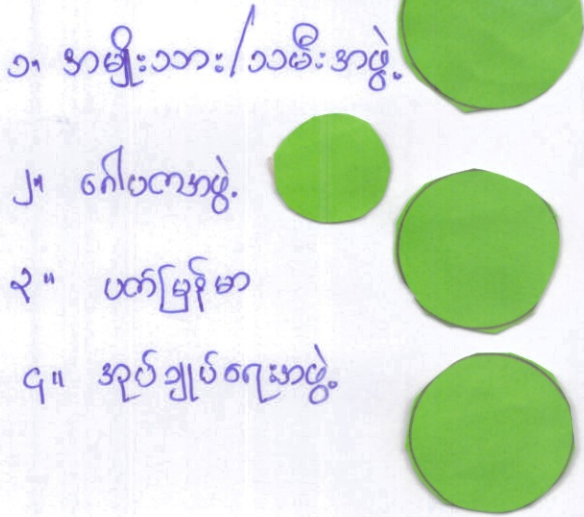 ၁။ အမျိုးသား/သမီးအဖွဲ့
၂။ ဂေါပကအဖွဲ့
၃။ ပတ်မြန်မာ
၄။ အုပ်ချုပ်ရေးအဖွဲ့